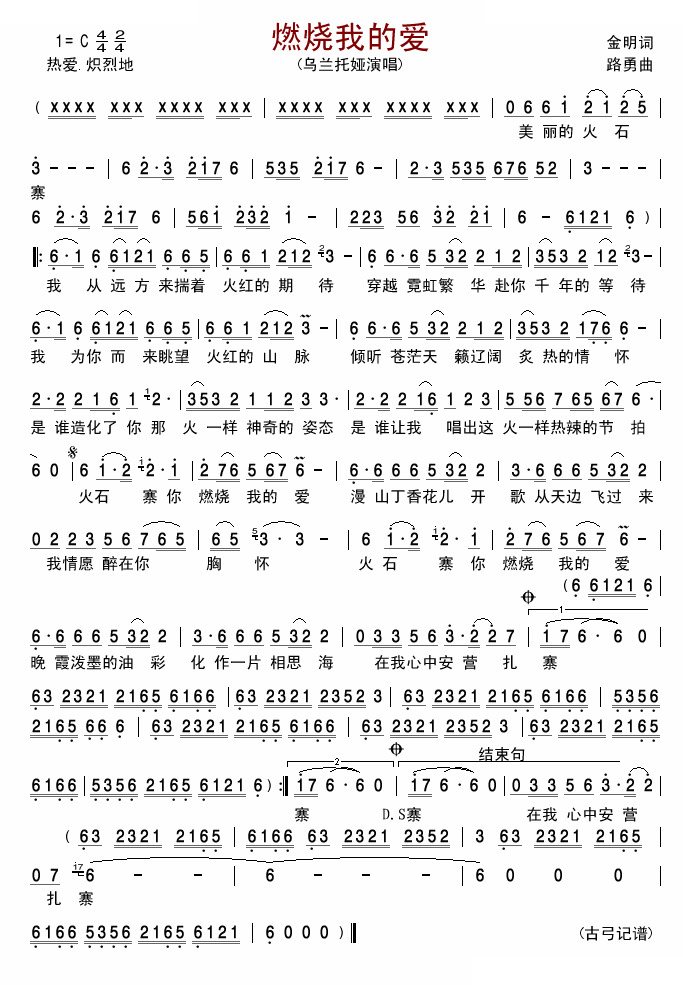 燃烧我的爱
1= C 4/4 2/4
金明词
热爱.炽烈地
(乌兰托娅演唱)
路勇曲
( xxxx xxxx xxxx xxxx | xxxx xxxx xxxx xxxx | 0 6 6 1 2 1 2 5 |
美 丽的 火 石
3 - - - | 6 2·3 217 6 | 535 217 6 - | 2·3 535 676 52 | 3 - - - |
寨
6 2·3 217 6 | 561 232 1 - | 223 56 32 21 | 6 - 6121 6 ) |
|: 6·1 6 6121 6 6 5 | 6 6 1 212 2 3 - | 6 6·6 5 32 2 1 2 | 353 2 12 2 3 - |
我 从 远 方 来揣着 火红的 期 待 穿越 霓虹繁 华 赴你 千 年的 等 待
6·1 6 6121 6 6 5 | 6 6 1 212 3 - | 6 6·6 5 32 2 1 2 | 353 2 176 6 - |
我 为你 而 来眺望 火红的 山 脉 倾听 苍茫天 籁辽阔 炙 热的情 怀
2·2 2 1 6 1 1 2· | 353 2 1 1 2 3 3 | 2·2 2 16 1 2 3 | 5 56 7 65 67 6· |
是 谁造化了 你 那 火 一样 神奇的 姿态 是 谁让我 唱出这 火一样热辣的节 拍
6 0 | 6 1·2 1 2·1 | 2 76 567 6 - | 6·6 6 6 5 32 2 | 3·6 6 6 5 32 2 |
火石 寨 你 燃烧 我的 爱 漫 山丁香花儿 开 歌 从天边 飞过 来
0 2 2 3 5 6 765 | 6 5 5 3· 3 - | 6 1·2 1 2·1 | 2 76 567 6 - |
我情愿 醉在你 胸 怀 火 石 寨 你 燃烧 我的 爱
(6 6121 6 |
6·6 6 6 5 32 2 | 3·6 6 6 5 32 2 | 0 3 3 5 6 3·2 2 7 | 1 17 6·6 0 |
晚 霞泼墨的油 彩 化 作一片 相思 海 在我心中安 营 扎 寨
63 2321 2165 6166 | 63 2321 2352 3 | 63 2321 2165 6166 | 5356
2165 66 6 | 63 2321 2165 6166 | 63 2321 2352 3 | 63 2321 2165
6166 | 5356 2165 6121 6 ) :| 2 17 6·6 0 | 结束句 17 6·6 0 | 0 3 3 5 6 3·2 2 |
寨 D.S寨 在我 心中安 营
( 63 2321 2165 | 6166 63 2321 2352 | 3 63 2321 2165 |
0 7 17 6 - - | 6 - - | 6 0 0 0 |
扎 寨
6166 5356 2165 6121 | 6 0 0 0 ) ||
(古弓记谱)